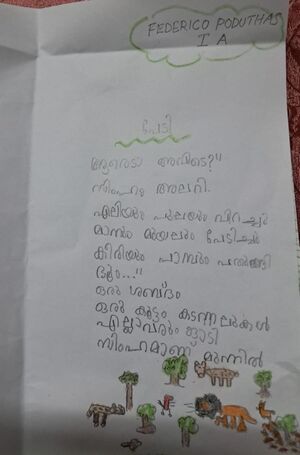 FEDERICO PODUTHAS
I A
പേടി
ആരെടാ അവിടെ?"
സിംഹം അലറി.
എലിയും പുലിയും വിറച്ചു
മാനും മുയലും പേടിച്ചു
കീരിയും പാമ്പും പതുങ്ങി
ഠും..."
ഒരു ശബ്ദം
ഒരു കൂട്ടം കടന്നലുകൾ
എല്ലാവരും ഓടി
സിംഹമാണ് മുന്നിൽ